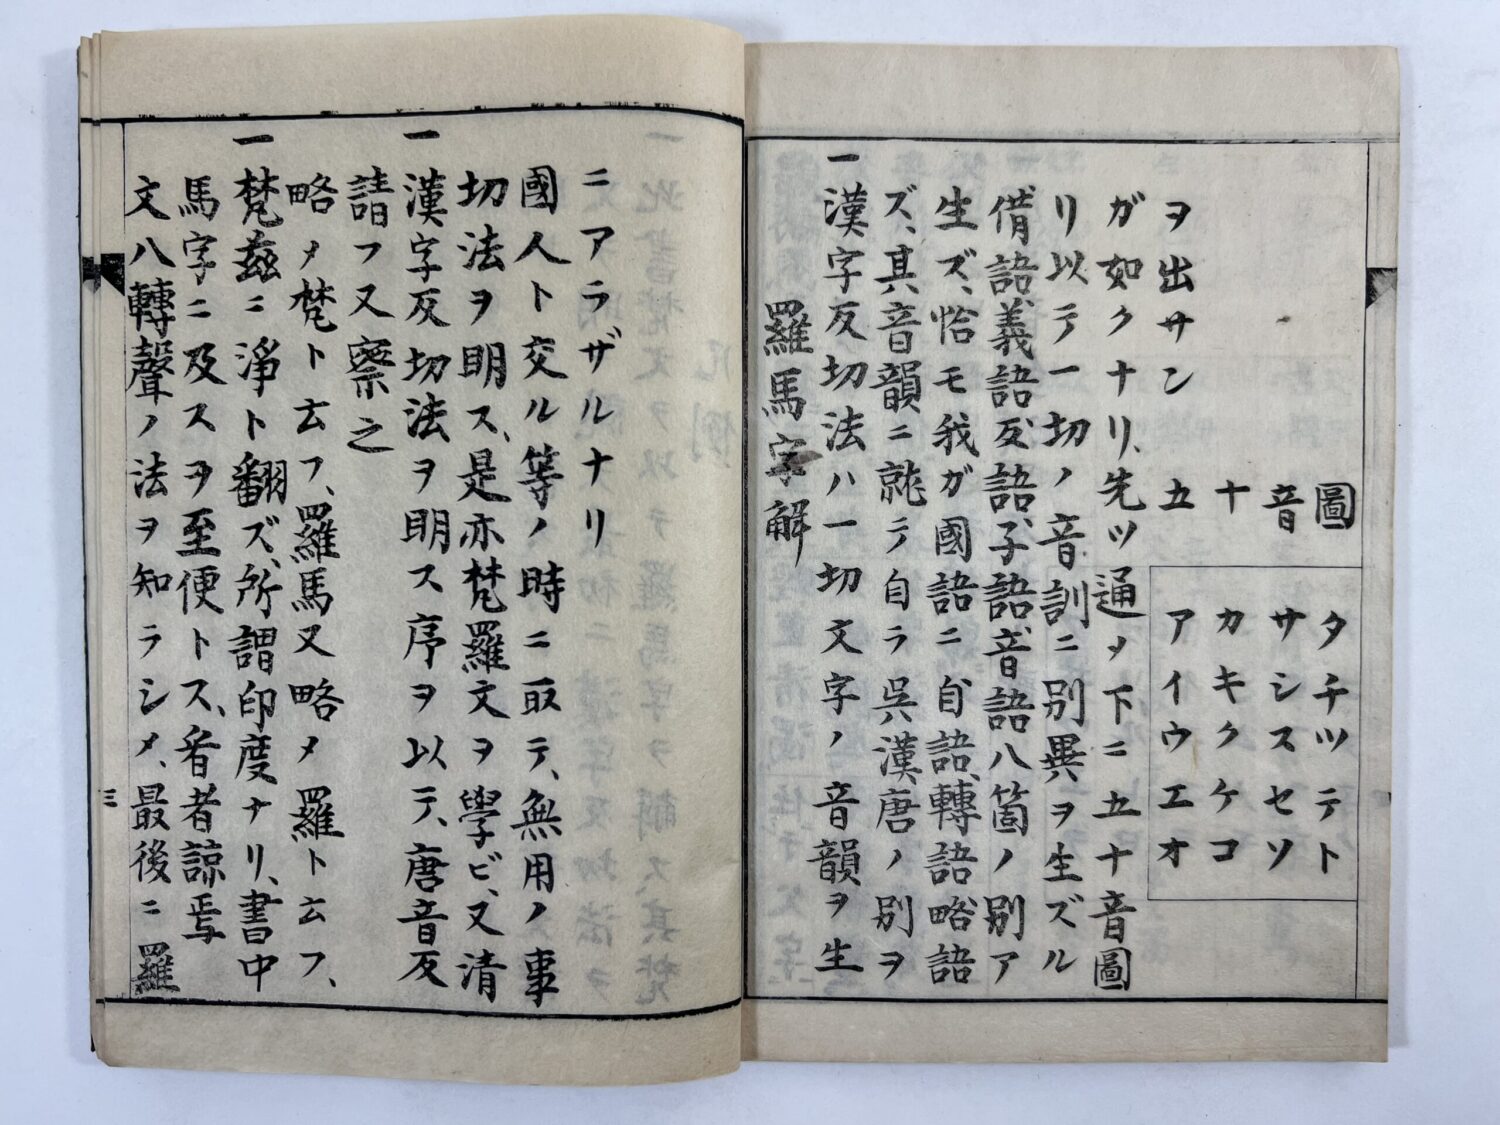 文八轉聲ノ法ヲ知ラシメ、最後ニ羅
馬字ニ及スヲ至便トス、看者諒焉
一梵茲ニ淨ト翻ズ、所謂印度ナリ、書中
略〆梵ト云フ、羅馬又略〆羅ト云フ、
請フ又察之
一漢字反切法ヲ明ス序ヲ以テ、唐音反
切法ヲ明ス、是亦梵羅文ヲ學ビ、又清
國人ト交ル等ノ時ニ取テ、無用ノ事
ニアラザルナリ
三
羅馬字解
一漢字反切法ハ一切文字ノ音韻ヲ生
ズ、其音韻ニ就テ自ラ呉漢唐ノ別ヲ
生ズ、恰モ我ガ國語ニ自語、轉語略語
借語、義語反語、子語、音語八箇ノ別ア
リ以テ一切ノ音訓ニ別異ヲ生ズル
ガ如クナリ、先ツ通〆下ニ五十音圖
ヲ出サン
五 アイウエオ
十 カキクケコ
音 サシスセソ
圖 タチツテト